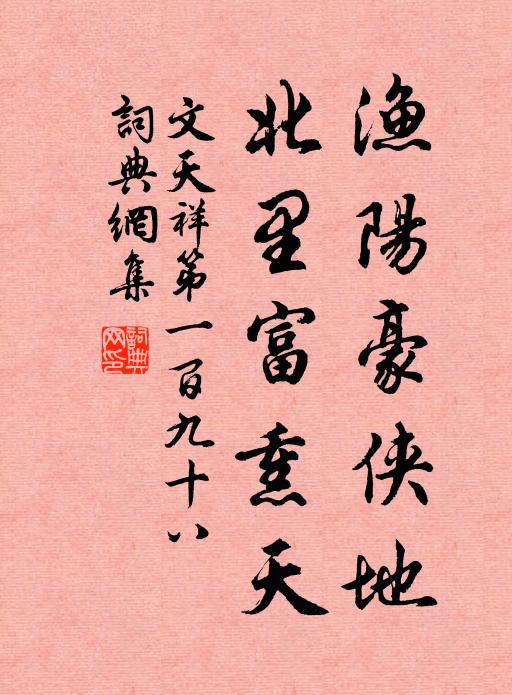 漁陽豪俠地
北里富熏天
文天祥第一百九十八
詞典網集
詞典網印